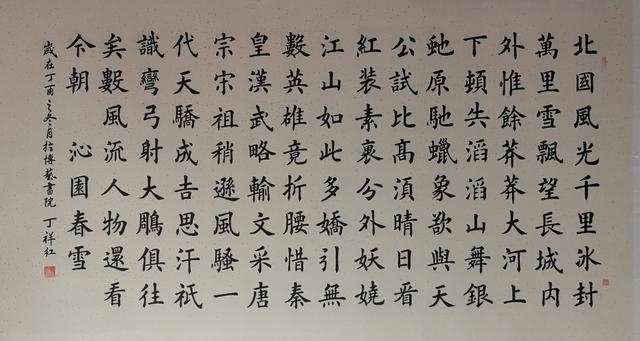 北國風光千里冰封
萬里雪飄望長城内
外惟餘莽莽大河上
下頓失滔滔山舞銀
虵原馳蠟象欲與天
公試比髙湏晴日看
紅装素裹分外妖嬈
江山如此多嬌引無
數英雄竟折腰惜秦
皇漢武略輸文采唐
宗宋祖稍遜風騷一
代天驕成吉思汗衹
識彎弓射大鵰俱往
矣數風流人物還看
今朝 沁園春雪
歲在丁酉之冬月於博藝書院 丁祥红